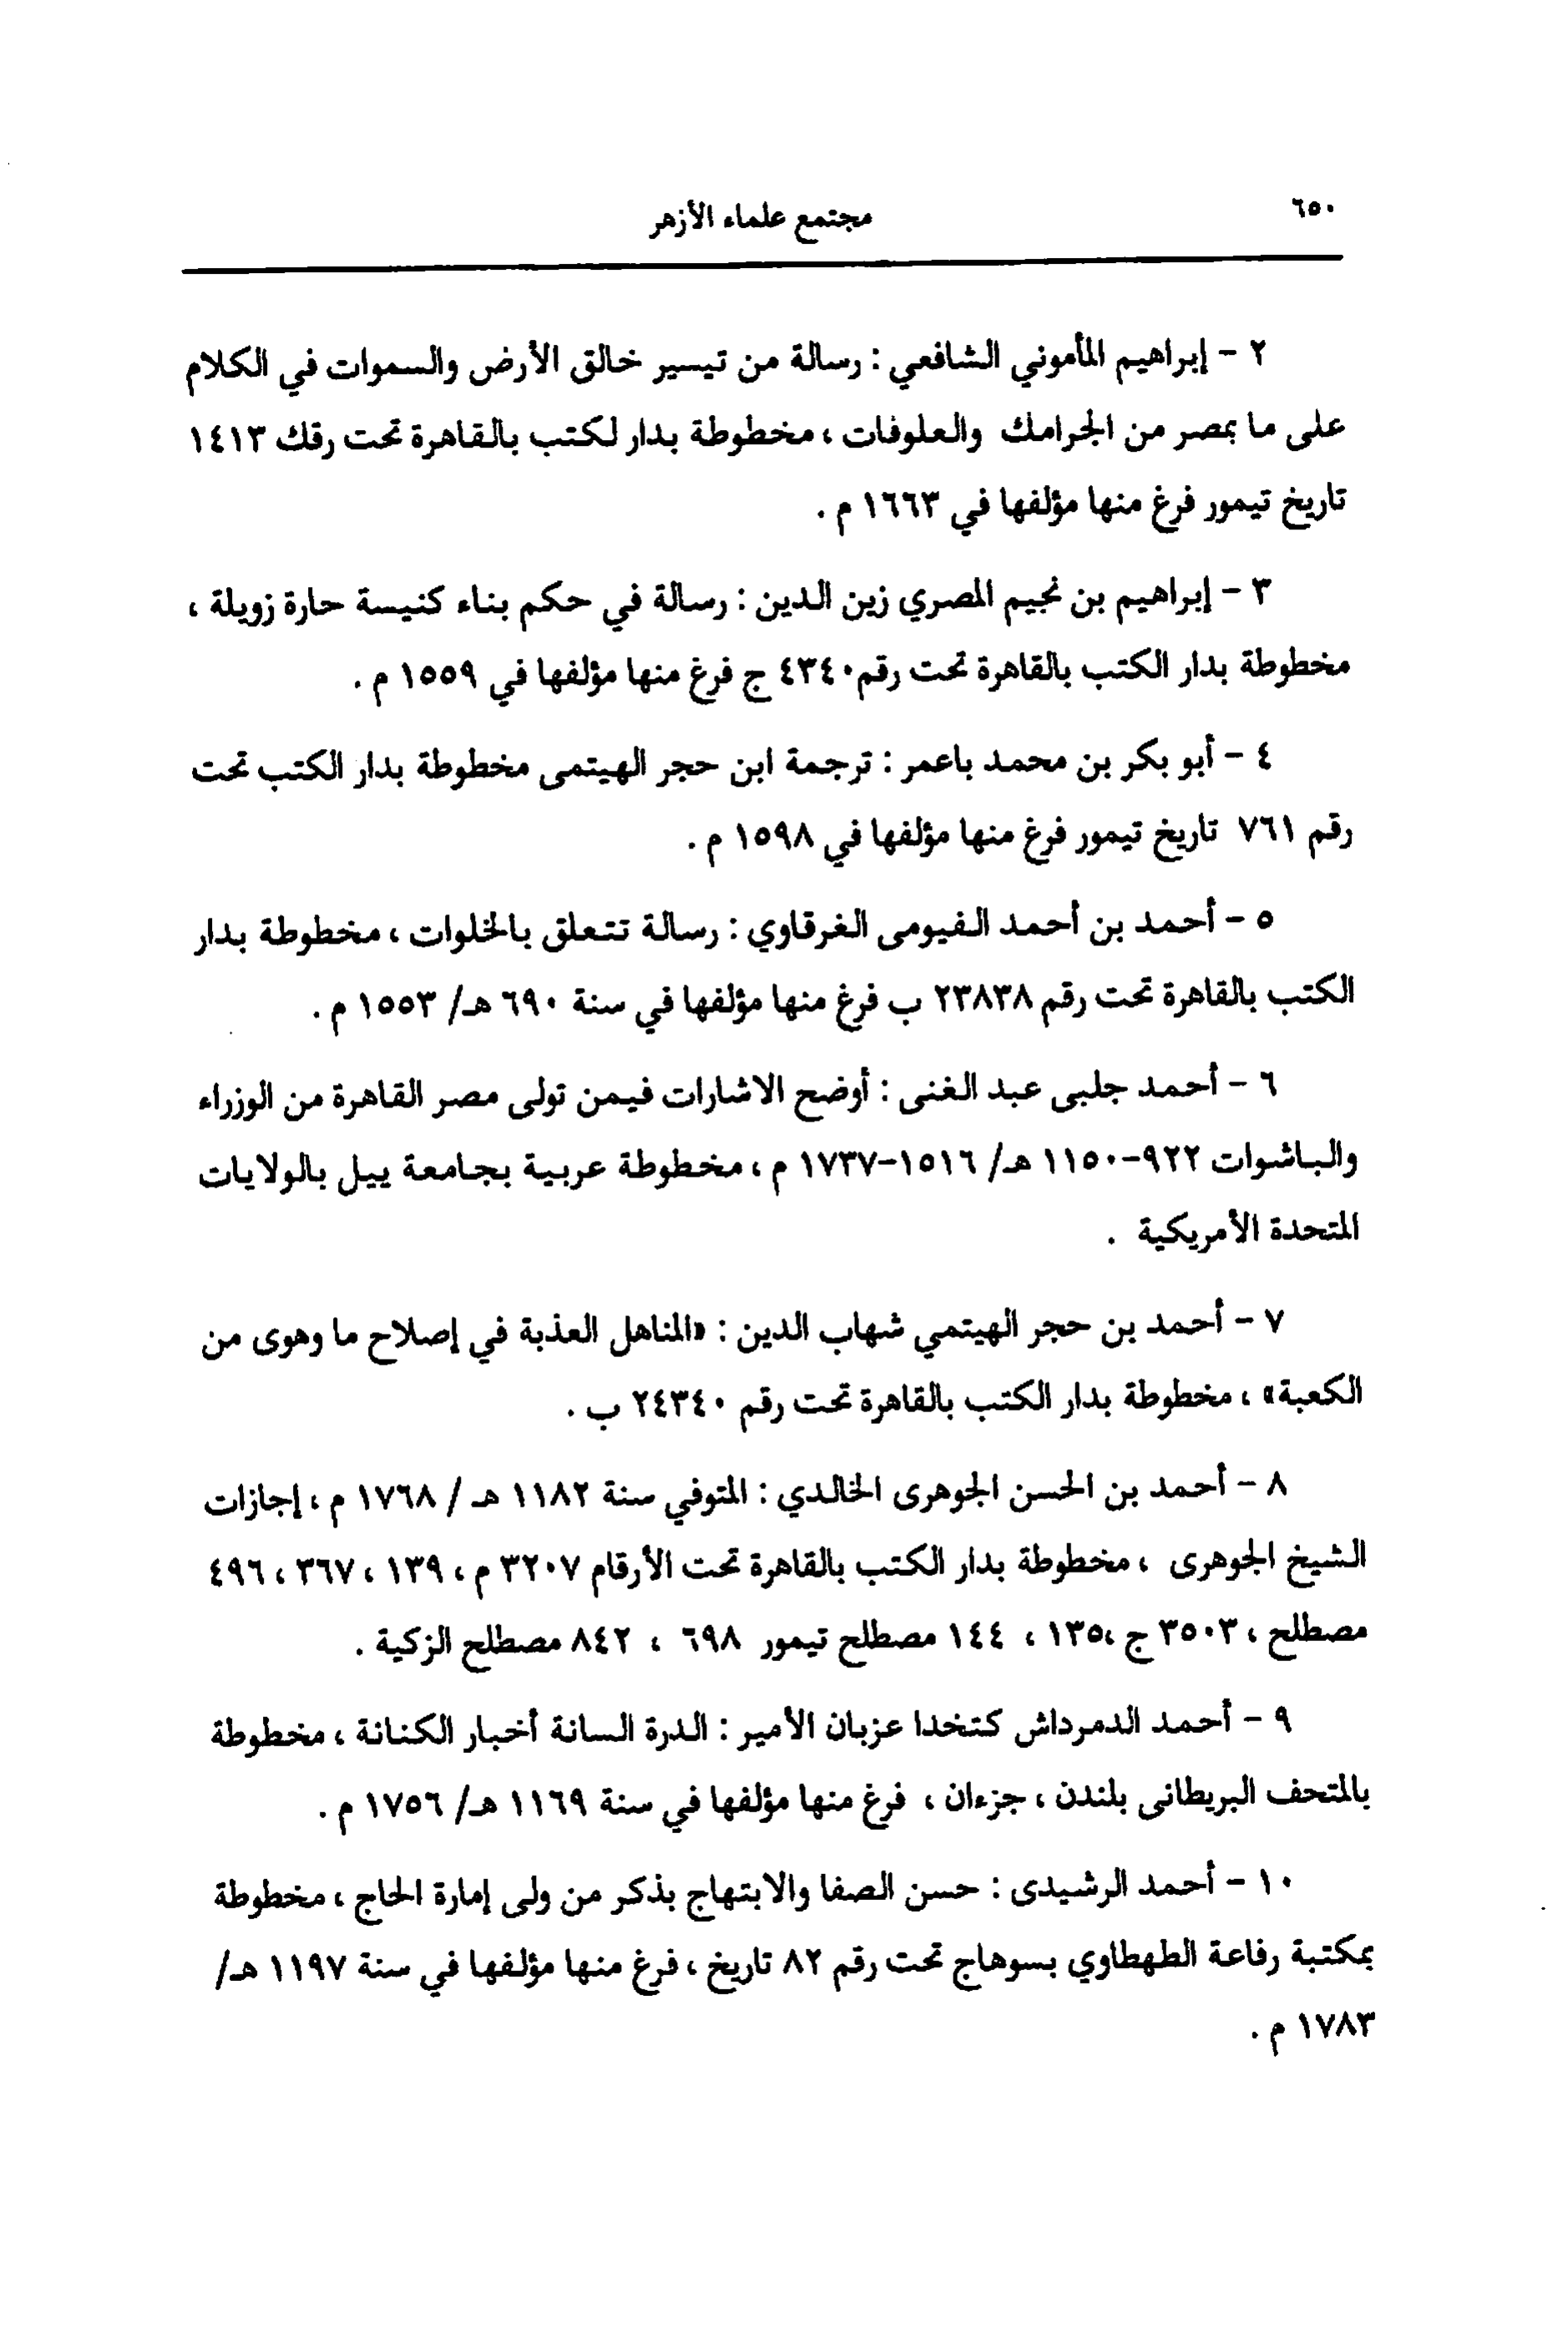 ٦٥٠
مجتمع علماء الأزهر
٢ - إبراهيم المأموني الشافعي : رسالة من تيسير خالق الأرض والسموات في الكلام
على ما بمصر من الجرامك والعلوفات ، مخطوطة بدار لكتب بالقاهرة تحت رقك ١٤١٣
تاريخ تيمور فرغ منها مؤلفها في ١٦٦٣ م .
٣ - إبراهيم بن نجيم المصري زين الدين : رسالة في حكم بناء كنيسة حارة زويلة ،
مخطوطة بدار الكتب بالقاهرة تحت رقم ٤٣٤٠ ج فرغ منها مؤلفها في ١٥٥٩ م .
٤ - أبو بكر بن محمد باعمر : ترجمة ابن حجر الهيتمى مخطوطة بدار الكتب تحت
رقم ٧٦١ تاريخ تيمور فرغ منها مؤلفها في ١٥٩٨ م .
٥ - أحمد بن أحمد الفيومى الغرقاوي : رسالة تتعلق بالخلوات ، مخطوطة بدار
الكتب بالقاهرة تحت رقم ٢٣٨٣٨ ب فرغ منها مؤلفها في سنة ٦٩٠ هـ/ ١٥٥٣ م .
٦ - أحمد جلبى عبد الغنى : أوضح الاشارات فيمن تولى مصر القاهرة من الوزراء
والباشوات ٩٢٢-١١٥٠ هـ/ ١٥١٦-١٧٣٧ م ، مخطوطة عربية بجامعة ييل بالولايات
المتحدة الأمريكية .
٧ - أحمد بن حجر الهيتمي شهاب الدين : «المناهل العذبة في إصلاح ما وهوى من
الكعبة» ، مخطوطة بدار الكتب بالقاهرة تحت رقم ٢٤٣٤٠ ب .
٨ - أحمد بن الحسن الجوهرى الخالدي : المتوفي سنة ١١٨٢ هـ / ١٧٦٨ م ، إجازات
الشيخ الجوهرى ، مخطوطة بدار الكتب بالقاهرة تحت الأرقام ٣٢٠٧ م ، ١٣٩ ، ٣٦٧ ، ٤٩٦
مصطلح ، ٣٥٠٣ ج ،١٣٥ ، ١٤٤ مصطلح تيمور ٦٩٨ ، ٨٤٢ مصطلح الزكية .
٩ - أحمد الدمرداش كتخدا عزبان الأمير : الدرة السانة أخبار الكنانة ، مخطوطة
بالمتحف البريطانى بلندن ، جزءان ، فرغ منها مؤلفها في سنة ١١٦٩ هـ/ ١٧٥٦ م .
١٠ - أحمد الرشيدى : حسن الصفا والابتهاج بذكر من ولى إمارة الحاج ، مخطوطة
بمكتبة رفاعة الطهطاوي بسوهاج تحت رقم ٨٢ تاريخ ، فرغ منها مؤلفها في سنة ١١٩٧ هـ/
١٧٨٣ م .